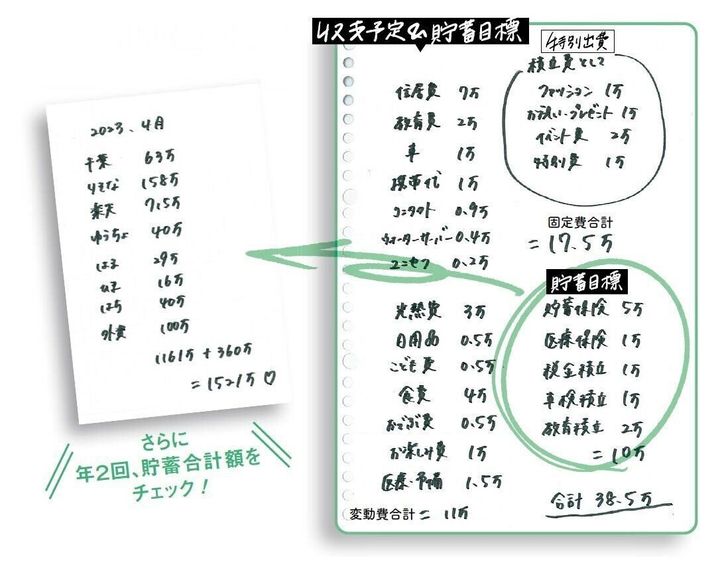 収支予定&貯蓄目標
特別出費
積立費として
ファッション 1万
お祝い・プレゼント 1万
イベント費 2万
特別費 1万
住居費 7万
教育費 2万
車 1万
携帯代 1万
コンタクト 0.9万
ウォーターサーバー 0.4万
ユニセフ 0.2万
固定費合計
=17.5万
光熱費 3万
日用品 0.5万
こども費 0.5万
食費 4万
おでかけ費 0.5万
お楽しみ費 1万
医療・予備 1.5万
変動費合計= 11万
貯蓄目標
貯蓄保険 5万
医療保険 1万
税金積立 1万
車検積立 1万
教育積立 2万
=10万
合計 38.5万
2023、4月
千葉 63万
りそな 158万
楽天 715万
ゆうちょ 40万
はる 29万
16万
はち 40万
外貨 100万
1161万+360万
=1521万♡
さらに
年2回、貯蓄合計額を
チェック!